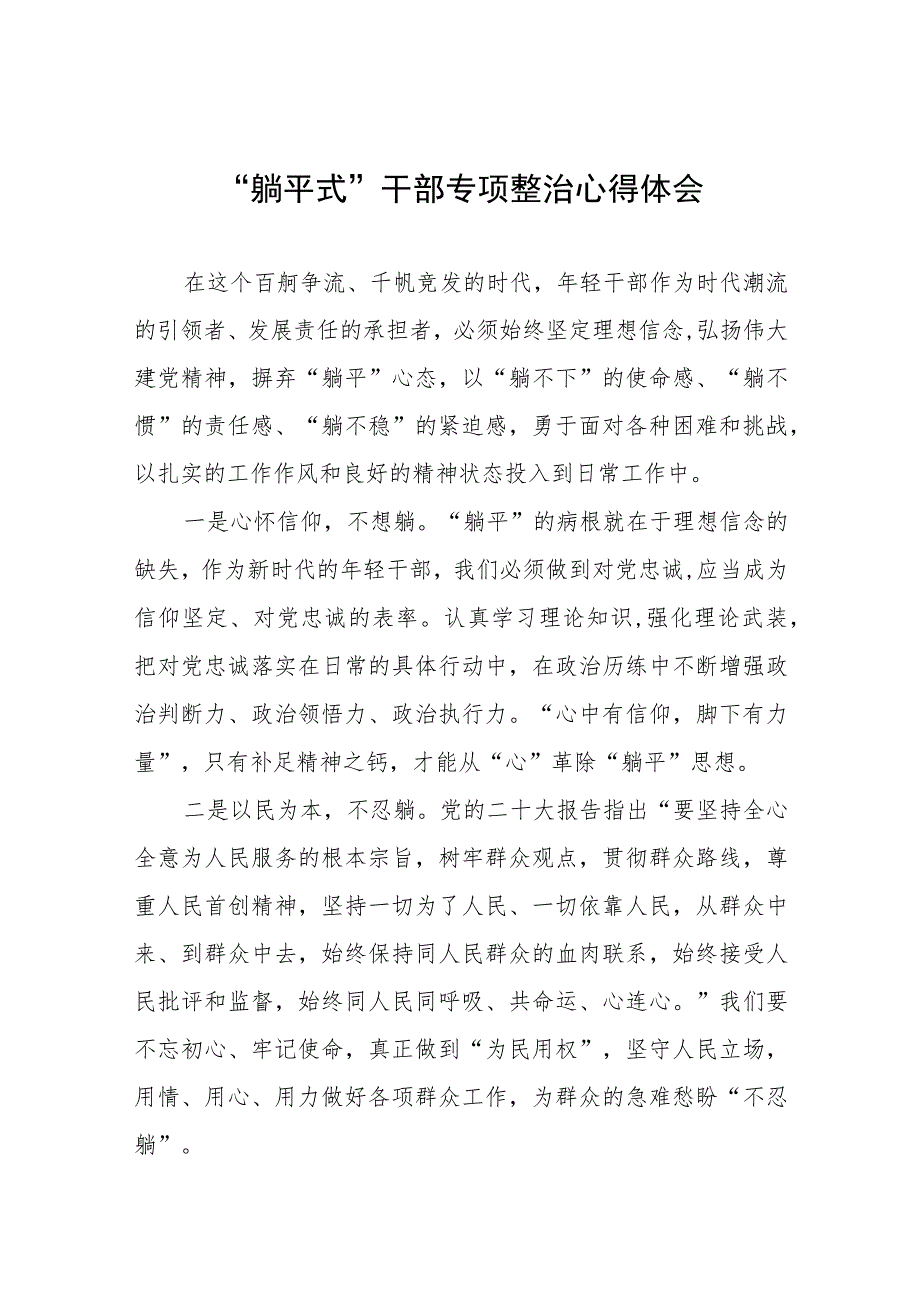 “躺平式”干部专项整治心得体会
在这个百舸争流、千帆竞发的时代，年轻干部作为时代潮流
的引领者、发展责任的承担者，必须始终坚定理想信念,弘扬伟大
建党精神，摒弃“躺平”心态，以“躺不下”的使命感、“躺不
惯”的责任感、“躺不稳”的紧迫感，勇于面对各种困难和挑战，
以扎实的工作作风和良好的精神状态投入到日常工作中。
一是心怀信仰，不想躺。“躺平”的病根就在于理想信念的
缺失，作为新时代的年轻干部，我们必须做到对党忠诚,应当成为
信仰坚定、对党忠诚的表率。认真学习理论知识,强化理论武装，
把对党忠诚落实在日常的具体行动中，在政治历练中不断增强政
治判断力、政治领悟力、政治执行力。“心中有信仰，脚下有力
量”，只有补足精神之钙，才能从“心”革除“躺平”思想。
二是以民为本，不忍躺。党的二十大报告指出“要坚持全心
全意为人民服务的根本宗旨，树牢群众观点，贯彻群众路线，尊
重人民首创精神，坚持一切为了人民、一切依靠人民，从群众中
来、到群众中去，始终保持同人民群众的血肉联系，始终接受人
民批评和监督，始终同人民同呼吸、共命运、心连心。”我们要
不忘初心、牢记使命，真正做到“为民用权”，坚守人民立场，
用情、用心、用力做好各项群众工作，为群众的急难愁盼“不忍
躺”。